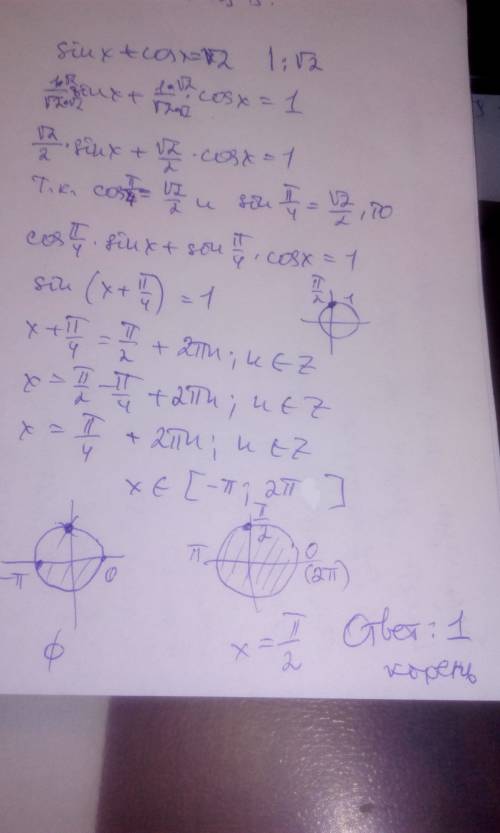 sinx + cosx = √2 | : √2
1·√2/√2·√2 sinx + 1·√2/√2·√2 · cosx = 1
√2/2 · sinx + √2/2 · cosx = 1
т.к. cos π/4 = √2/2 и sin π/4 = √2/2, то
cos π/4 · sinx + sin π/4 · cosx = 1
sin (x + π/4) = 1
π/2 1
x + π/4 = π/2 + 2πn; n ∈ Z
x = π/2 - π/4 + 2πn; n ∈ Z
x = π/4 + 2πn; n ∈ Z
x ∈ [-π; 2π]
-π 0
π π/2 0
(2π)
ϕ x = π/2 Ответ: 1
корень